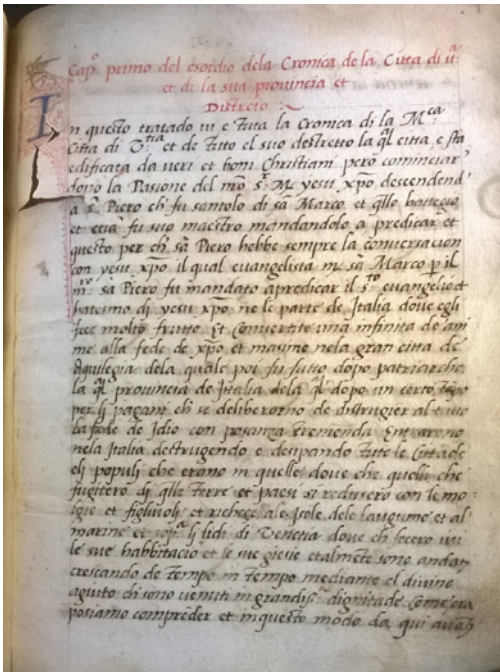 Cap.º primo del esordio dela Cronica de la Citta di v.ª
et di la sua provincia et
Distreto :~
In questo tratado ui e tuta la Cronica di la M.ca
Citta di V.tia et de tuto el suo destretto la ql citta e sta
edificata da veri et boni Christiani pero cominciar
dopo la Pasione del mro s.r M. yesu xpo descendend
a s. Piero ch fu santolo di sā Marco et qllo battegio
et etiā fu suo maestro mandandolo a predicar et
questo per ch sā Piero hebbe sempre la conversacion
con yesu xpo il qual euangelista m. sā Marco p il
m.ro sā Piero fu mandato apredicar il s.to euangelio et
batesmo di yesu xpo ne le parte de Italia dove egli
fece molto frutto Et convertite una infinita de ani
me alla fede de xpo et masime nela gran citta de
Aquilegia dela quale poi fu fatto dopo patriarcha
la ql provincia de Italia dela ql dopo un certo tēpo
per lj pagani ch se deliberorno de distrugier al tuto
la fede de Idio con posanza tremenda Entrarono
nela Italia destrugendo e desipando tute le Cittade
elj populj che erono in quelle dove che quelli che
fugitero dj qlle terre et paesi si redussero con le mo
glie et figliuolj et richece ale Isole dele laugume et al
marine et sop.ª lj lidi di Venetia dove ch fecero
le sue habbitacio et le sue giesie etalmēte sono andat
crescando de tempo in tempo mediante el divino
agiuto ch sono venuti in grandiss.ª dignitade Come ora
posiamo comprēder et inquesto modo da qui